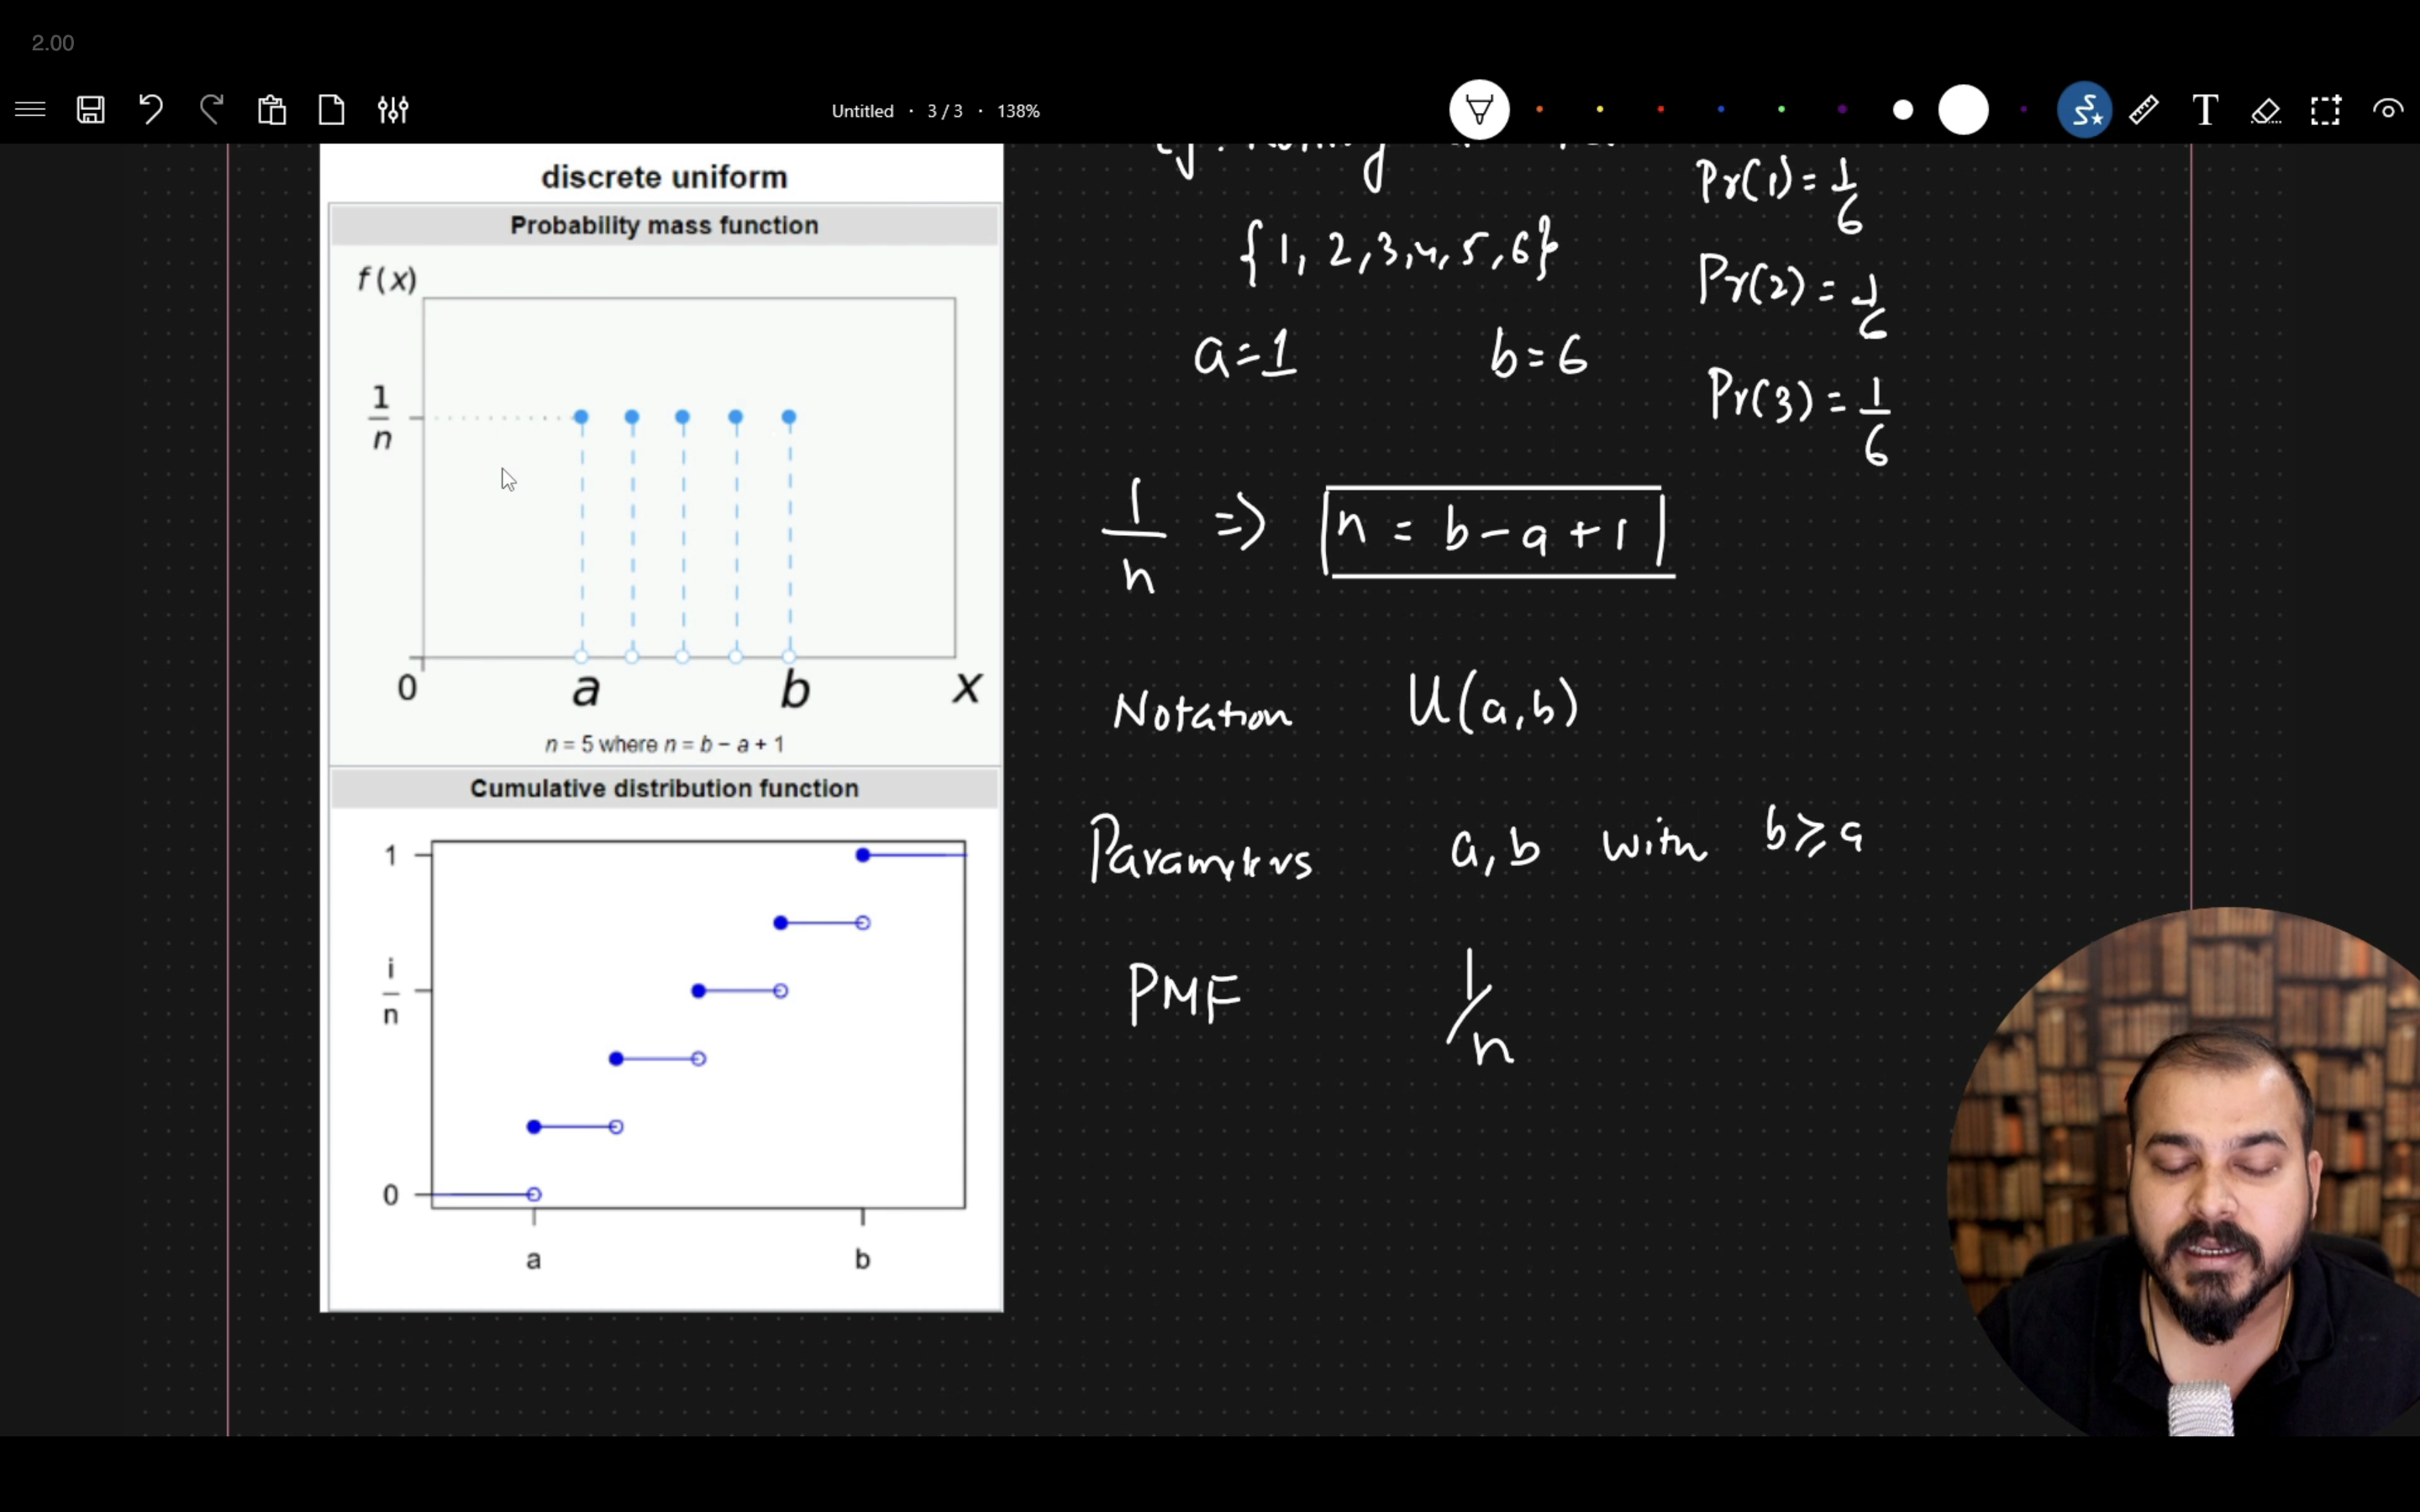 2.00
Untitled · 3 / 3 · 138%
discrete uniform
Probability mass function
f(x)
1
n
0
a
b
x
n = 5 where n = b − a + 1
Cumulative distribution function
1
i
n
0
a
b
{1, 2, 3, 4, 5, 6}
a=1 b=6
Pr(1) = 1/6
Pr(2) = 1/6
Pr(3) = 1/6
1/n => n = b - a + 1
Notation U(a,b)
Parameters a, b with b ≥ a
PMF 1/n